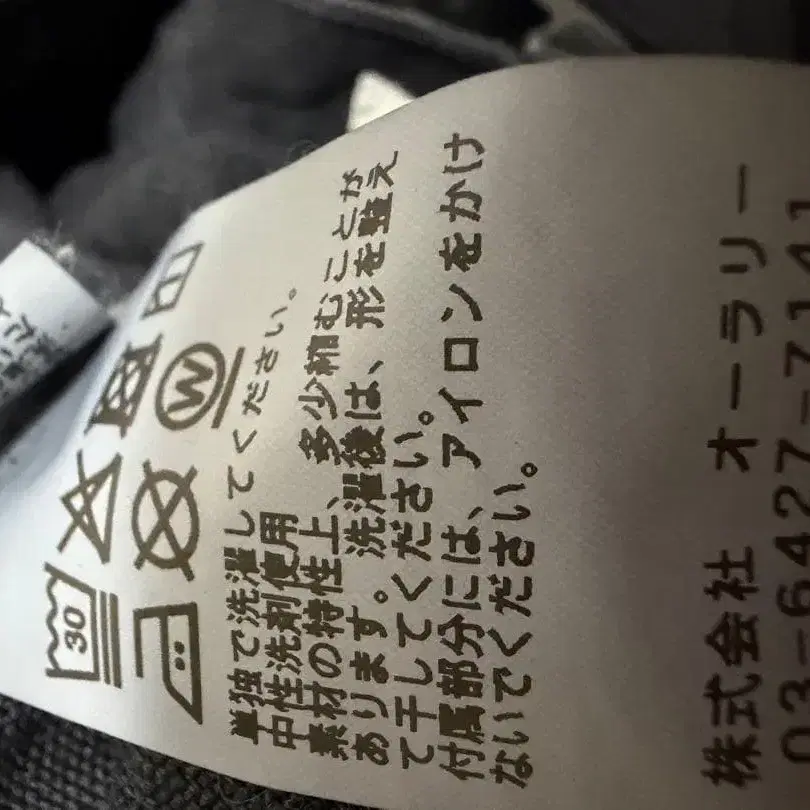 30
W
単独で洗濯してください。
中性洗剤使用
素材の特性上、多少縮むことが
あります。洗濯後は、形を整え
て干してください。
付属部分には、アイロンをかけ
ないでください。
株式会社 オーラリー
03-6427-7141